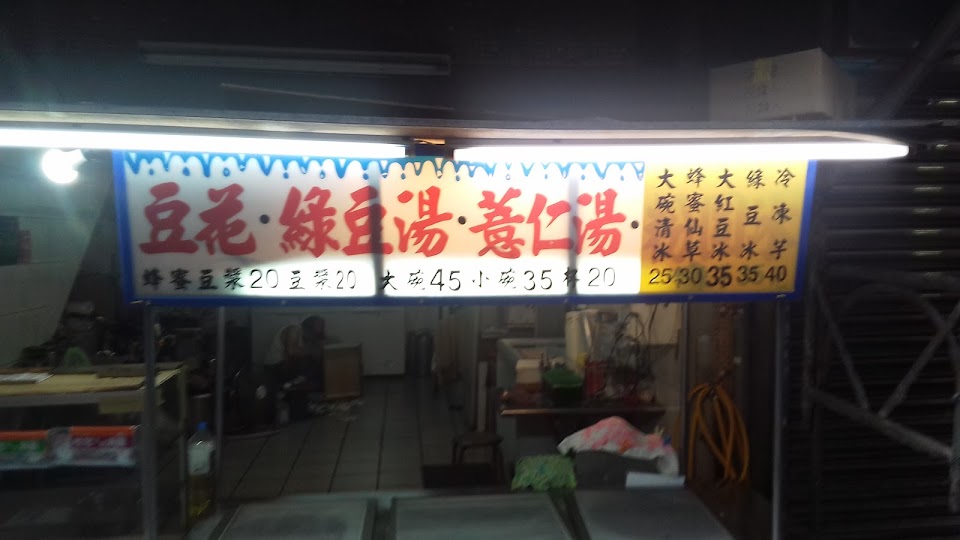 豆花·綠豆湯·薏仁湯·
蜂蜜豆漿20 豆漿20 大碗45 小碗35 杯20
大碗清冰 25
蜂蜜仙草 30
大紅豆冰 35
綠豆冰 35
冷凍芋 40